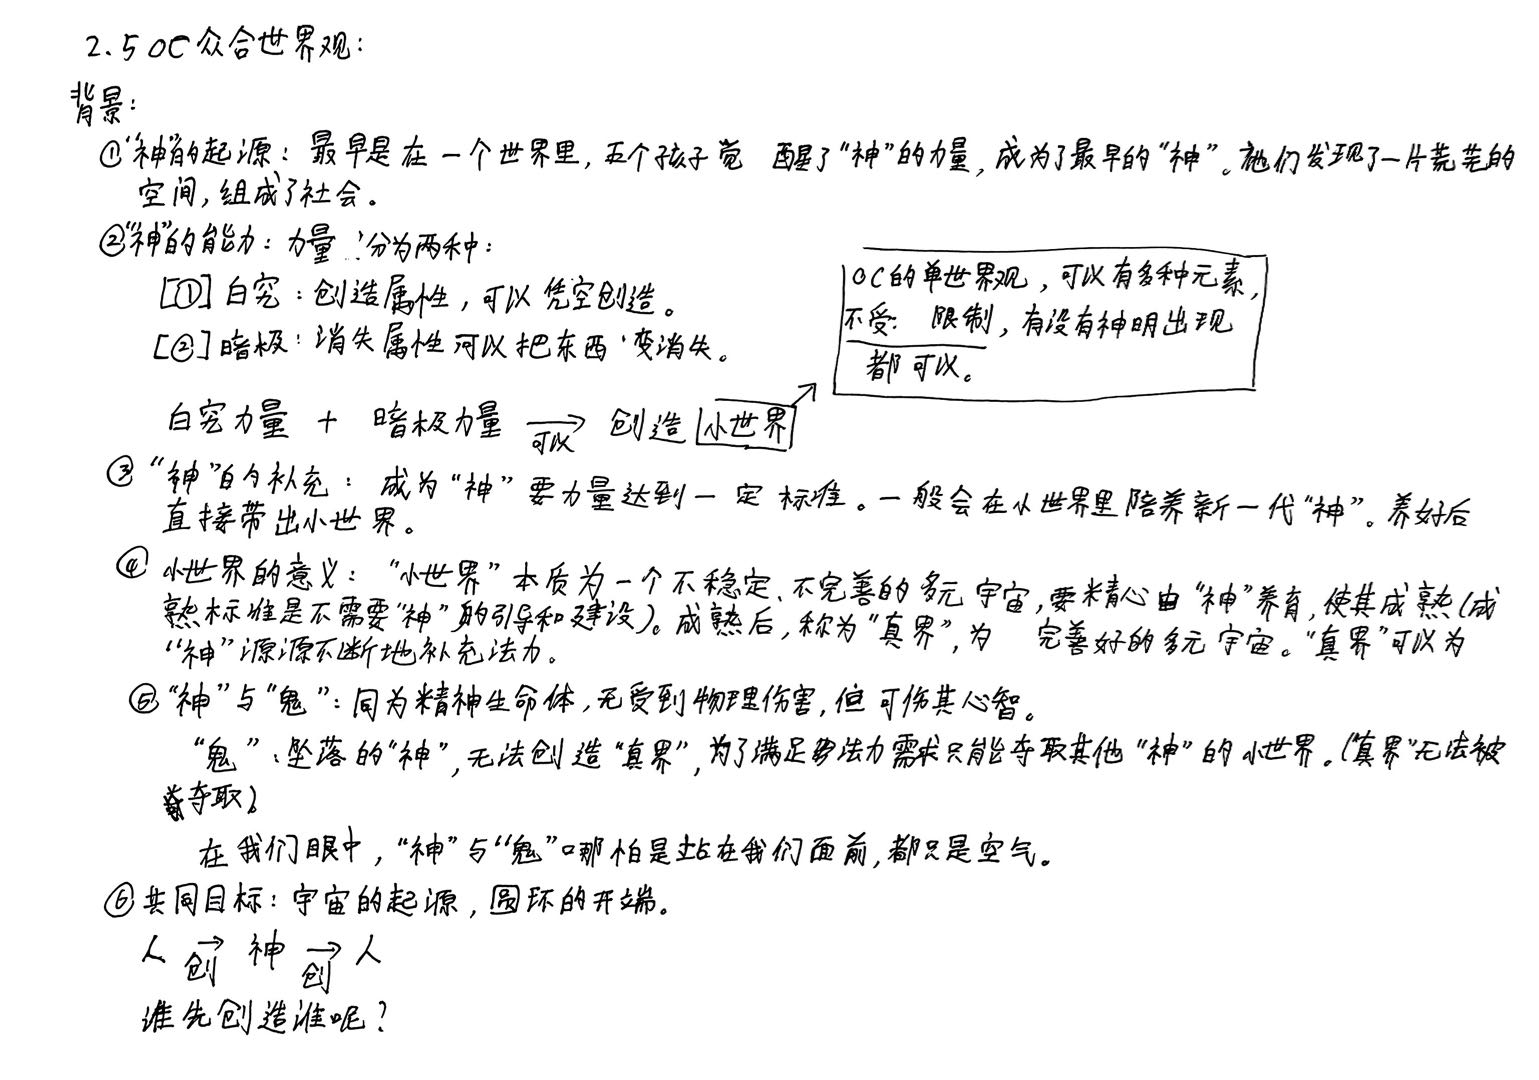 2.5 OC众合世界观:
背景:
①“神”的起源: 最早是在一个世界里, 五个孩子觉醒了“神”的力量, 成为了最早的“神”。祂们发现了一片荒芜的
空间, 组成了社会。
②“神”的能力: 力量分为两种:
[①] 白究: 创造属性, 可以凭空创造。
[②] 暗极: 消失属性可以把东西变消失。
OC的单世界观, 可以有多种元素,
不受: 限制, 有没有神明出现
都可以。
白究力量 + 暗极力量 →可以 创造 小世界
③“神”的补充: 成为“神”要力量达到一定标准。一般会在小世界里陪养新一代“神”。养好后
直接带出小世界。
④ 小世界的意义: “小世界”本质为一个不稳定、不完善的多元宇宙, 要精心由“神”养育, 使其成熟(成
熟标准是不需要“神”的引导和建设)。成熟后, 称为“真界”, 为 完善好的多元宇宙。“真界”可以为
“神”源源不断地补充法力。
⑤“神”与“鬼”: 同为精神生命体, 无受到物理伤害, 但可伤其心智。
“鬼”: 坠落的“神”, 无法创造“真界”, 为了满足法力需求只能夺取其他“神”的小世界。(“真界”无法被
夺取)
在我们眼中, “神”与“鬼”哪怕是站在我们面前, 都只是空气。
⑥共同目标: 宇宙的起源, 圆环的开端。
人 →创 神 →创 人
谁先创造谁呢?